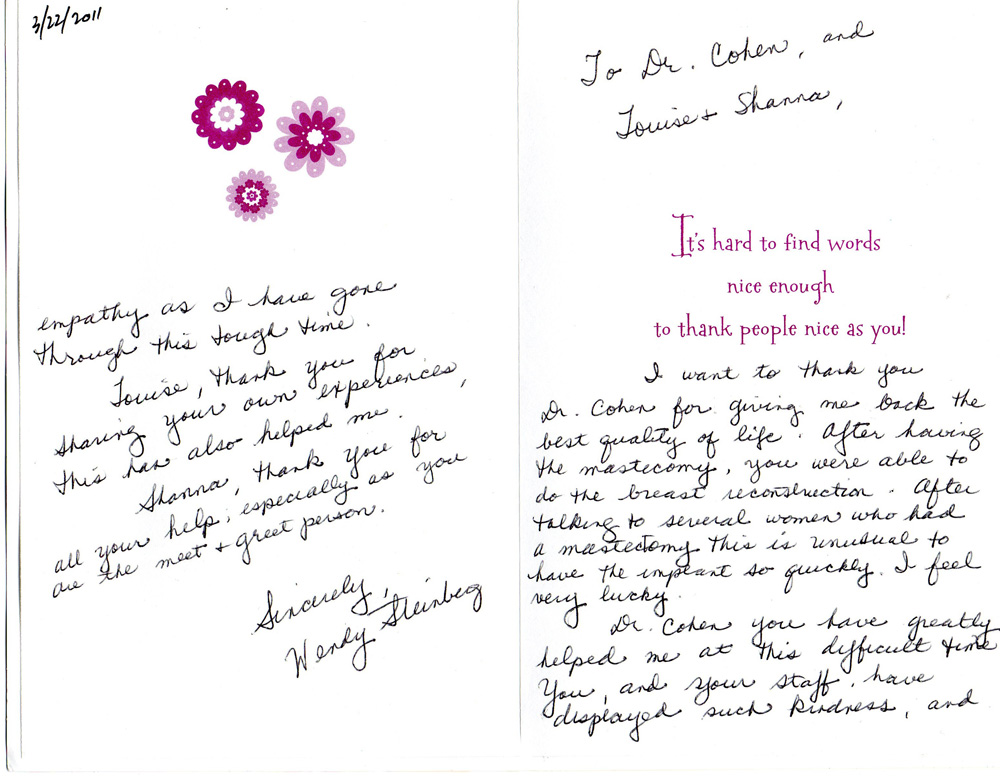 3/22/2011
To Dr. Cohen, and
Louise + Shanna,
It's hard to find words
nice enough
to thank people nice as you!
I want to thank you
Dr. Cohen for giving me back the
best quality of life. After having
the mastecomy, you were able to
do the breast reconstruction. After
talking to several women who had
a mastectomy this is unusual to
have the implant so quickly. I feel
very lucky.
Dr. Cohen you have greatly
helped me at this difficult time
You, and your staff, have
displayed such kindness, and
empathy as I have gone
through this tough time.
Louise, thank you for
sharing your own experiences,
this has also helped me.
Shanna, thank you for
all your help, especially as you
are the meet + greet person.
Sincerely,
Wendy Steinberg